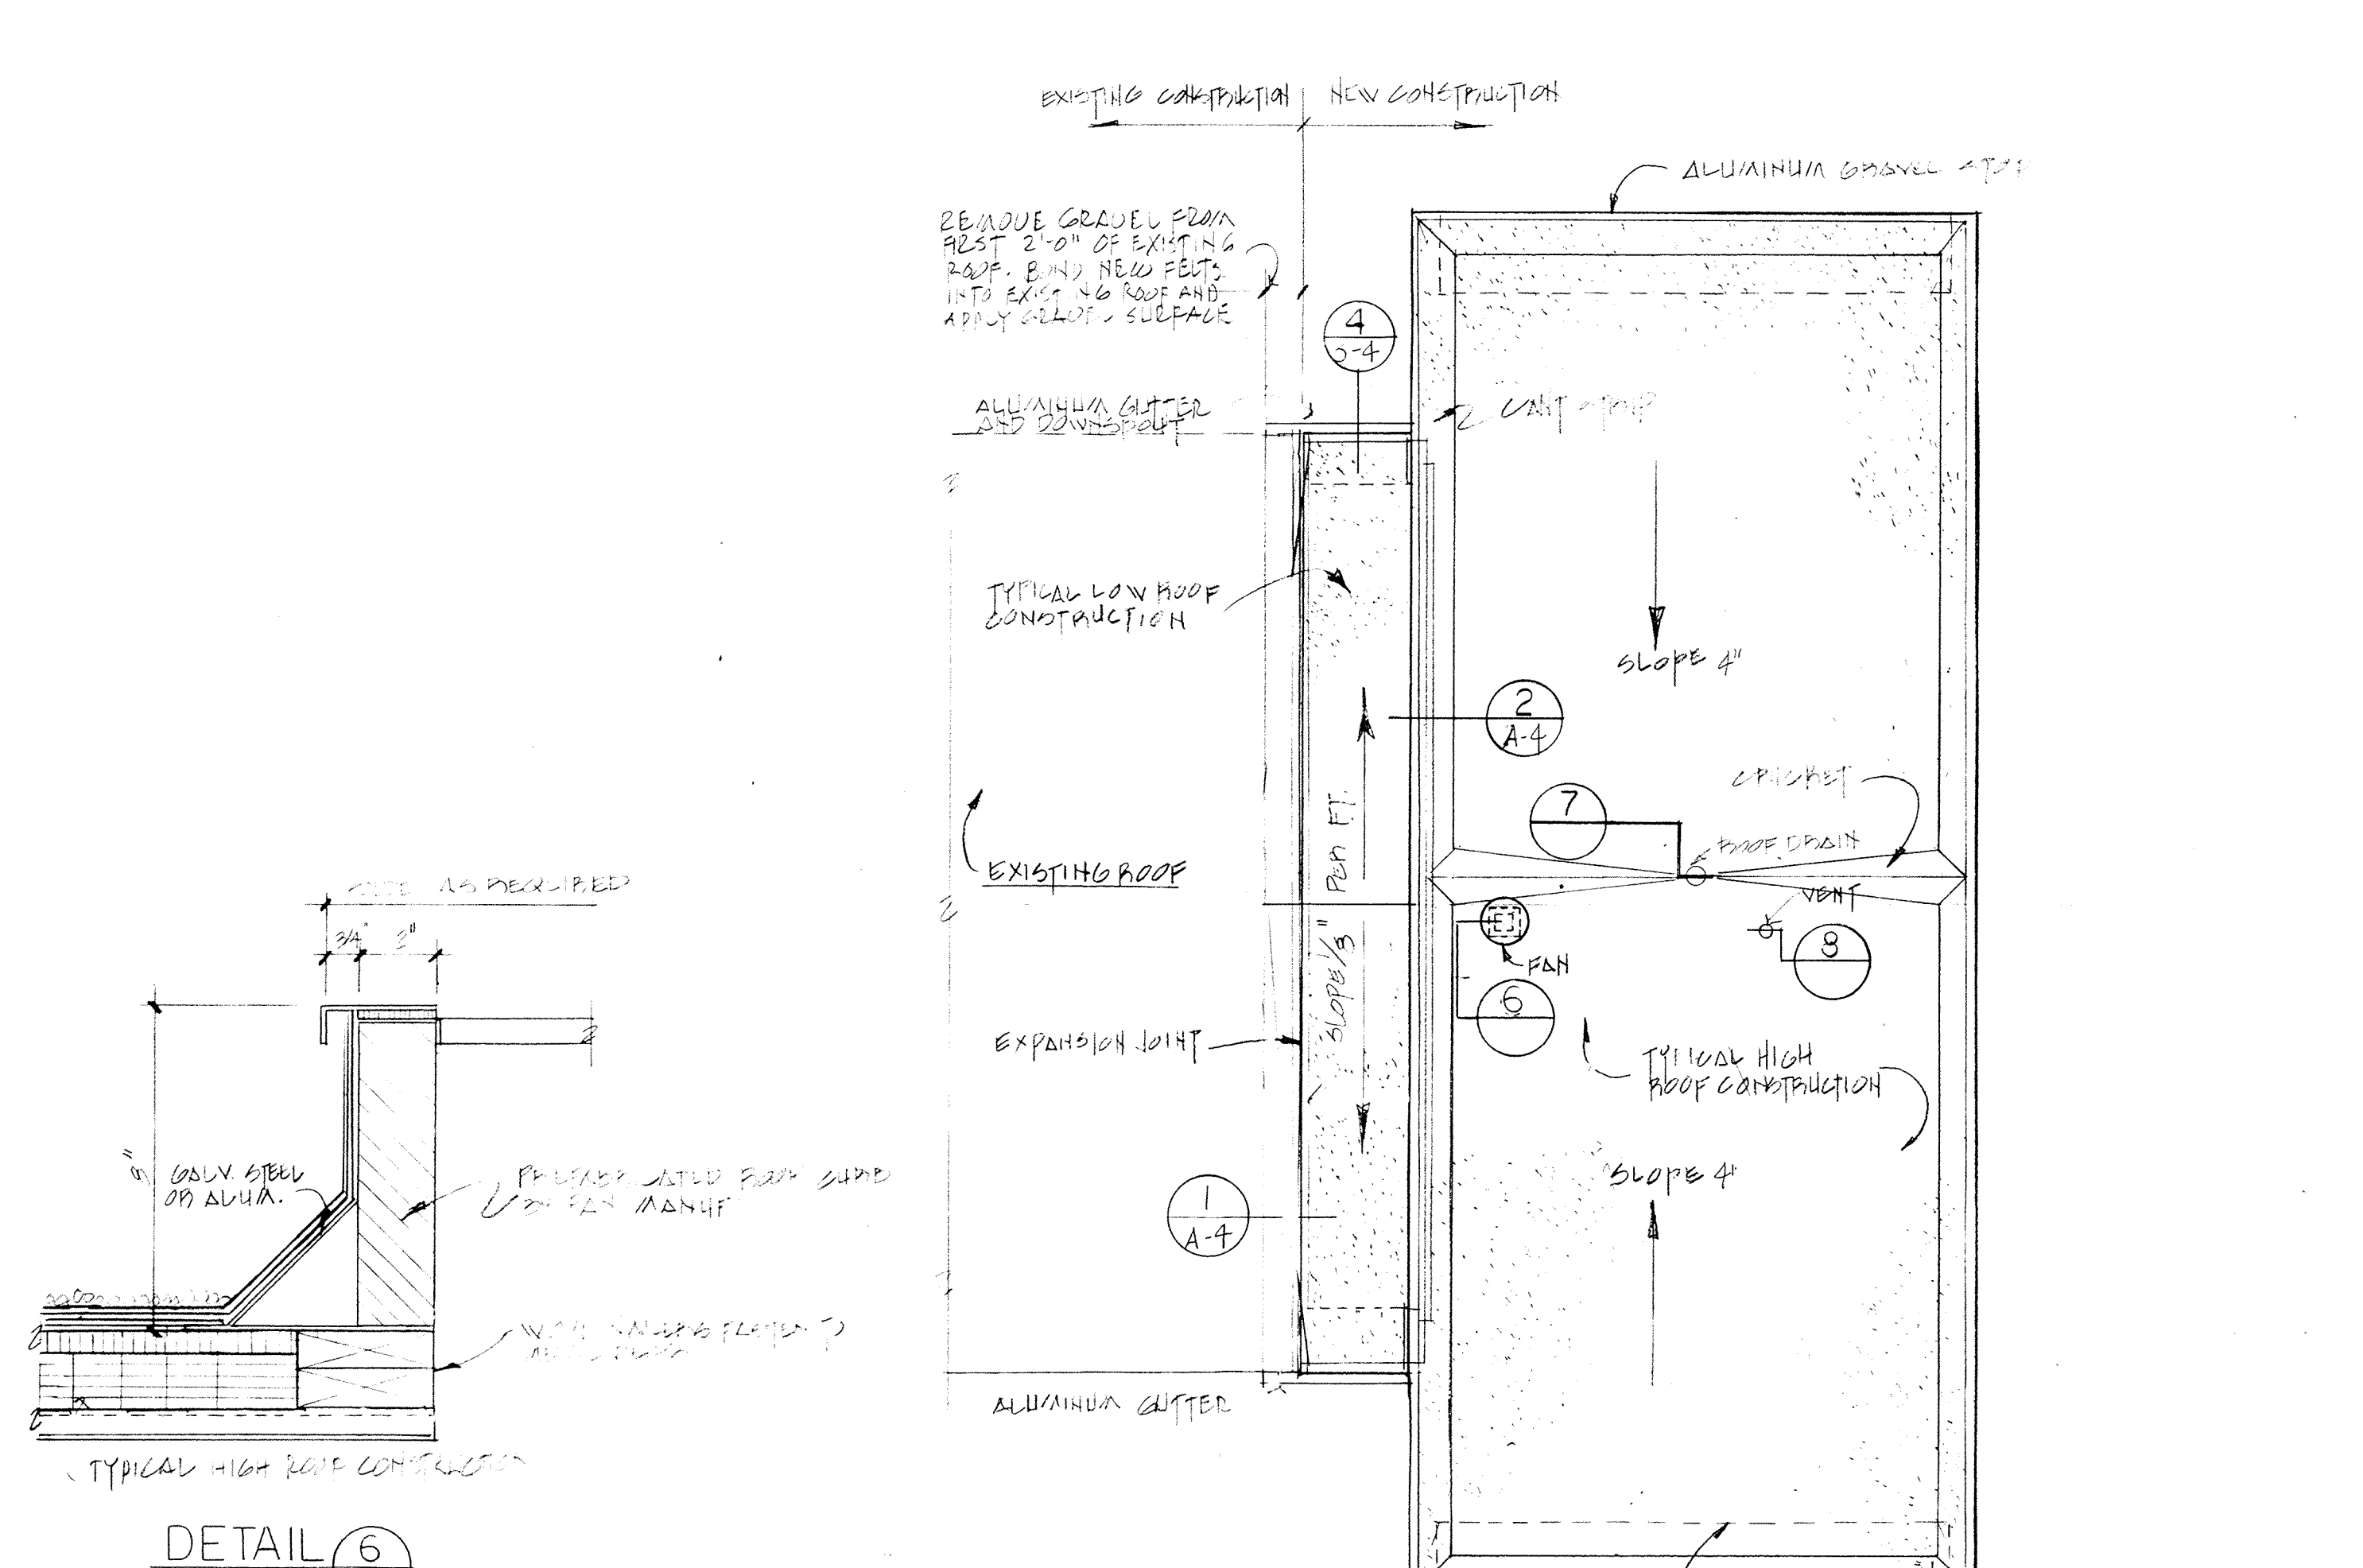 EXISTING CONSTRUCTION
NEW CONSTRUCTION
ALUMINUM GRAVEL STOP
REMOVE GRAVEL FROM
FIRST 2'-0" OF EXISTING
ROOF. BOND NEW FELTS
INTO EXISTING ROOF AND
APPLY GRAVEL SURFACE
4
S-4
ALUMINUM GUTTER
AND DOWNSPOUT
CANT STRIP
TYPICAL LOW ROOF
CONSTRUCTION
SLOPE 4"
2
A-4
CRICKET
7
ROOF DRAIN
EXISTING ROOF
SLOPE 1/8" PER FT.
VENT
8
FAN
6
EXPANSION JOINT
TYPICAL HIGH
ROOF CONSTRUCTION
SLOPE 4"
1
A-4
ALUMINUM GUTTER
SIZE AS REQUIRED
3/4" 2"
GALV. STEEL
OR ALUM.
PREFABRICATED ROOF CURB
BY FAN MANUF
NAILERS FASTEN TO
TYPICAL HIGH ROOF CONSTRUCTION
DETAIL 6